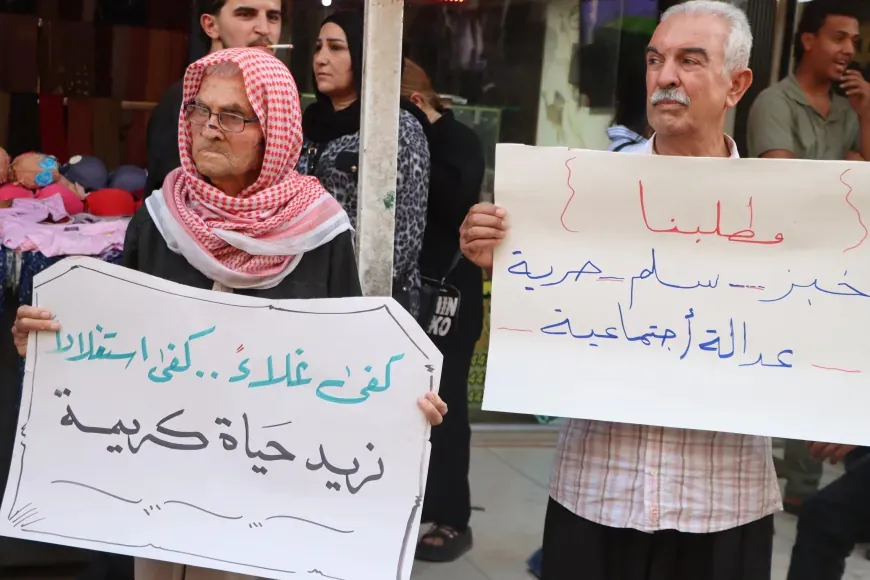 كفىٰ غلاءً .. كفىٰ استغلالاً
نريد حَيَاة كريمة
{ مطلبنا }
خبز - سلم - حرية
- عدالة أجتماعية -